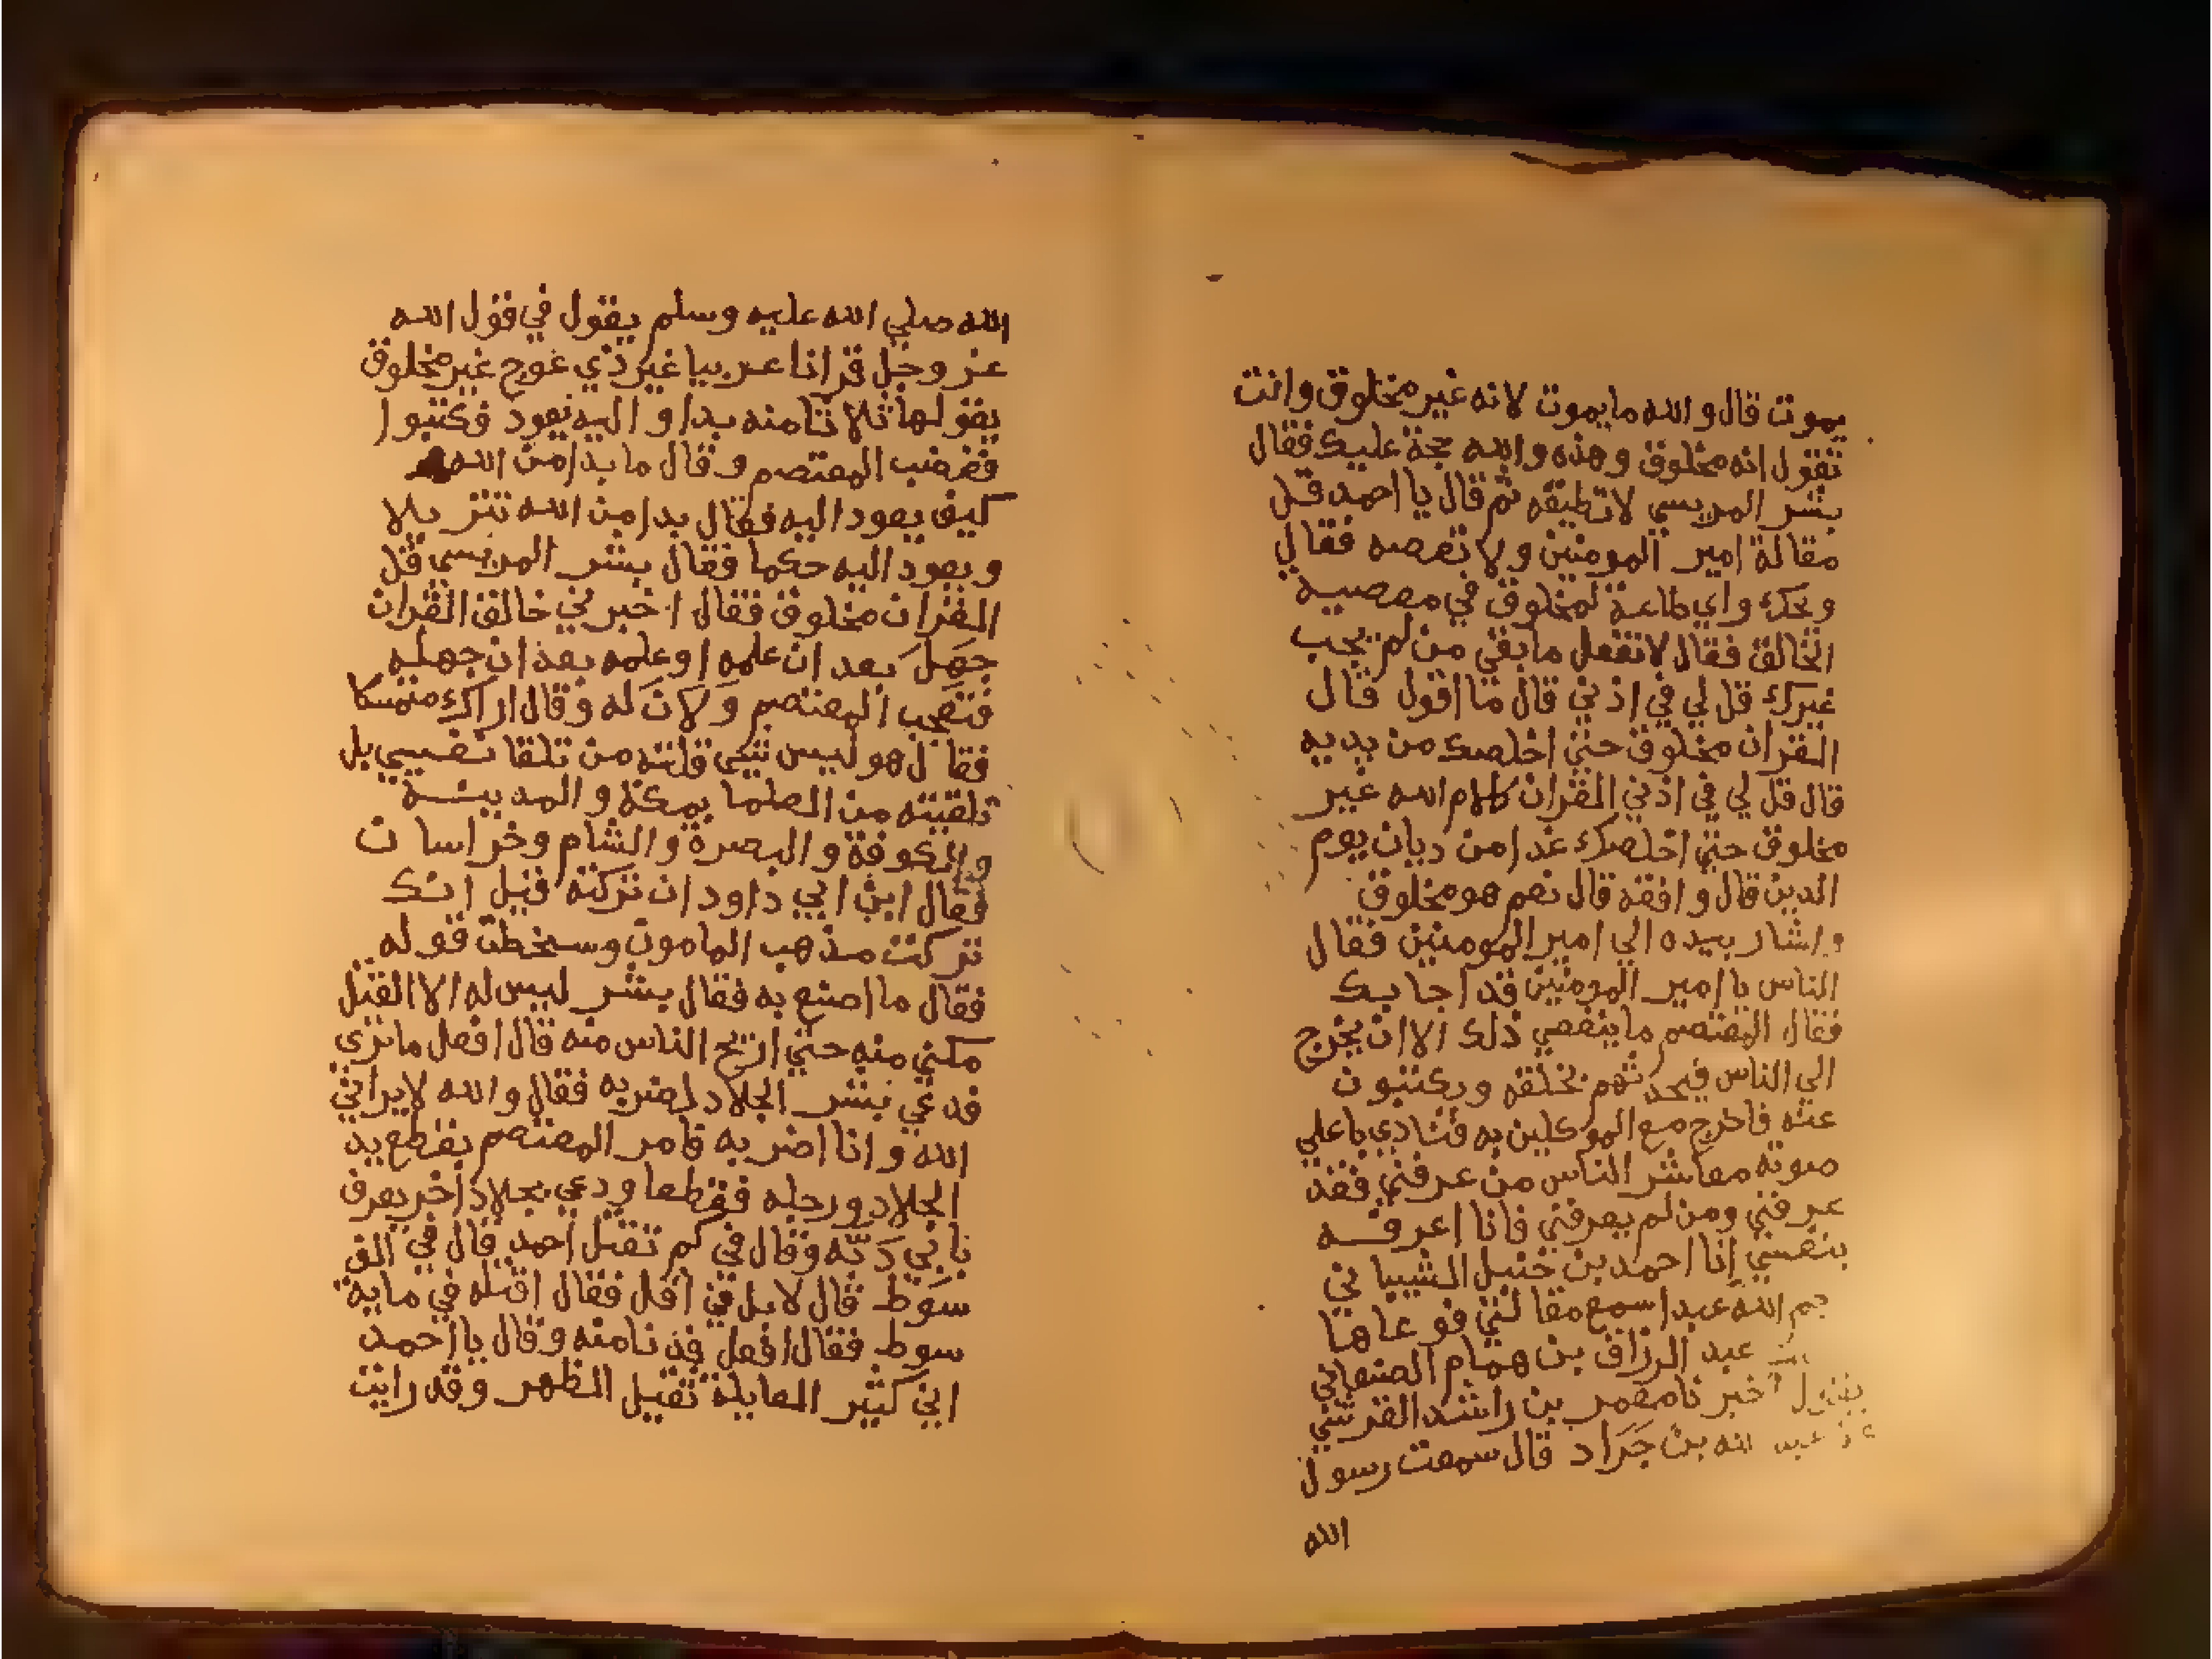 يموت قال والله مايموت لانه غير مخلوق وانت
تقول انه مخلوق وهذه والله حجة عليك فقال
بشر المريسي لاتطيقه ثم قال يا احمد قل
مقالة امير المومنين ولا تعصه فقال
ويحك واي طاعة لمخلوق في معصية
الخالق فقال لاتفعل مابقي من لم يجب
غيرك قل لي في اذني قال ما اقول قال
القران مخلوق حتي اخلصك من يديه
قال قل لي في اذني القران كلام الله غير
مخلوق حتي اخلصك غدا من ديان يوم
الدين قال وافقه قال نعم هو مخلوق
واشار بيده الي امير المومنين فقال
الناس يا امير المومنين قد اجابك
فقال المعتصم ماينفعني ذلك الا ان يخرج
الي الناس فيحدثهم بخلقه ويكتبون
عنه فاخرج مع الموكلين به فنادي باعلي
صوته معاشر الناس من عرفني فقد
عرفني ومن لم يعرفني فانا اعرفه
بنفسي انا احمد بن حنبل الشيباني
الله عبدا سمع مقالتي فوعاها
عبد الرزاق بن همام الصنعاني
يقول اخبرنا معمر بن راشد القرشي
عن عبد الله بن جَرَاد قال سمعت رسول
الله
الله صلي الله عليه وسلم يقول في قول الله
عز وجل قرانا عربيا غير ذي عوج غير مخلوق
يقولها ثلاثا منه بدا واليه يعود فكتبوا
فغضب المعتصم وقال ما بدا من الله
كيف يعود اليه فقال بدا من الله تنزيلا
ويعود اليه حكما فقال بشر المريسي قل
القران مخلوق فقال اخبرني خالق القران
جهل بعد ان علمه او علمه بعد ان جهله
فتعجب المعتصم وَلَانَ له وقال اراك متمسكا
فقال هو ليس شي قلته من تلقا نفسي بل
تلقيته من العلما بمكة والمدينة
والكوفة والبصرة والشام وخراسان
فقال ابن ابي داود ان تركته قيل انك
تركت مذهب المامون وسخطت قوله
فقال ما اصنع به فقال بشر ليس له الا القتل
مكني منه حتي اريح الناس منه قال افعل ماتري
فدعي بشر الجلاد لضربه فقال والله لايراني
الله وانا اضربه فامر المعتصم بقطع يد
الجلاد ورجله فقطعا ودعي بجلاد اخر يعرف
بابي دَنّه وقال في كم تقتل احمد قال في الف
سوط قال لا بل في اقل فقال اقتله في ماية
سوط فقال افعل فدنا منه وقال يا احمد
اني كثير العايلة ثقيل الظهر وقد رايت